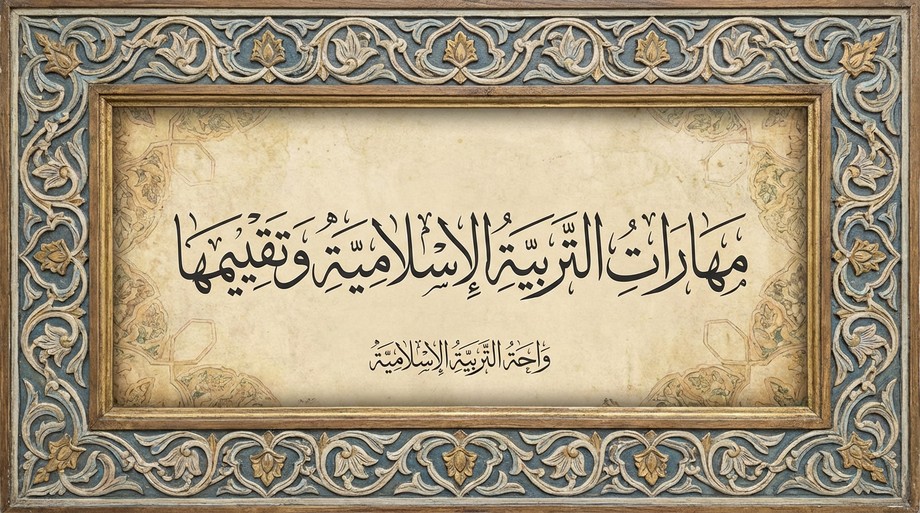 مَهَارَاتُ التَّرْبِيَّةِ الإِسْلَامِيَّةِ وَتَقْيِيمُهَا
وَاحَةُ التَّرْبِيَّةِ الإِسْلَامِيَّةِ